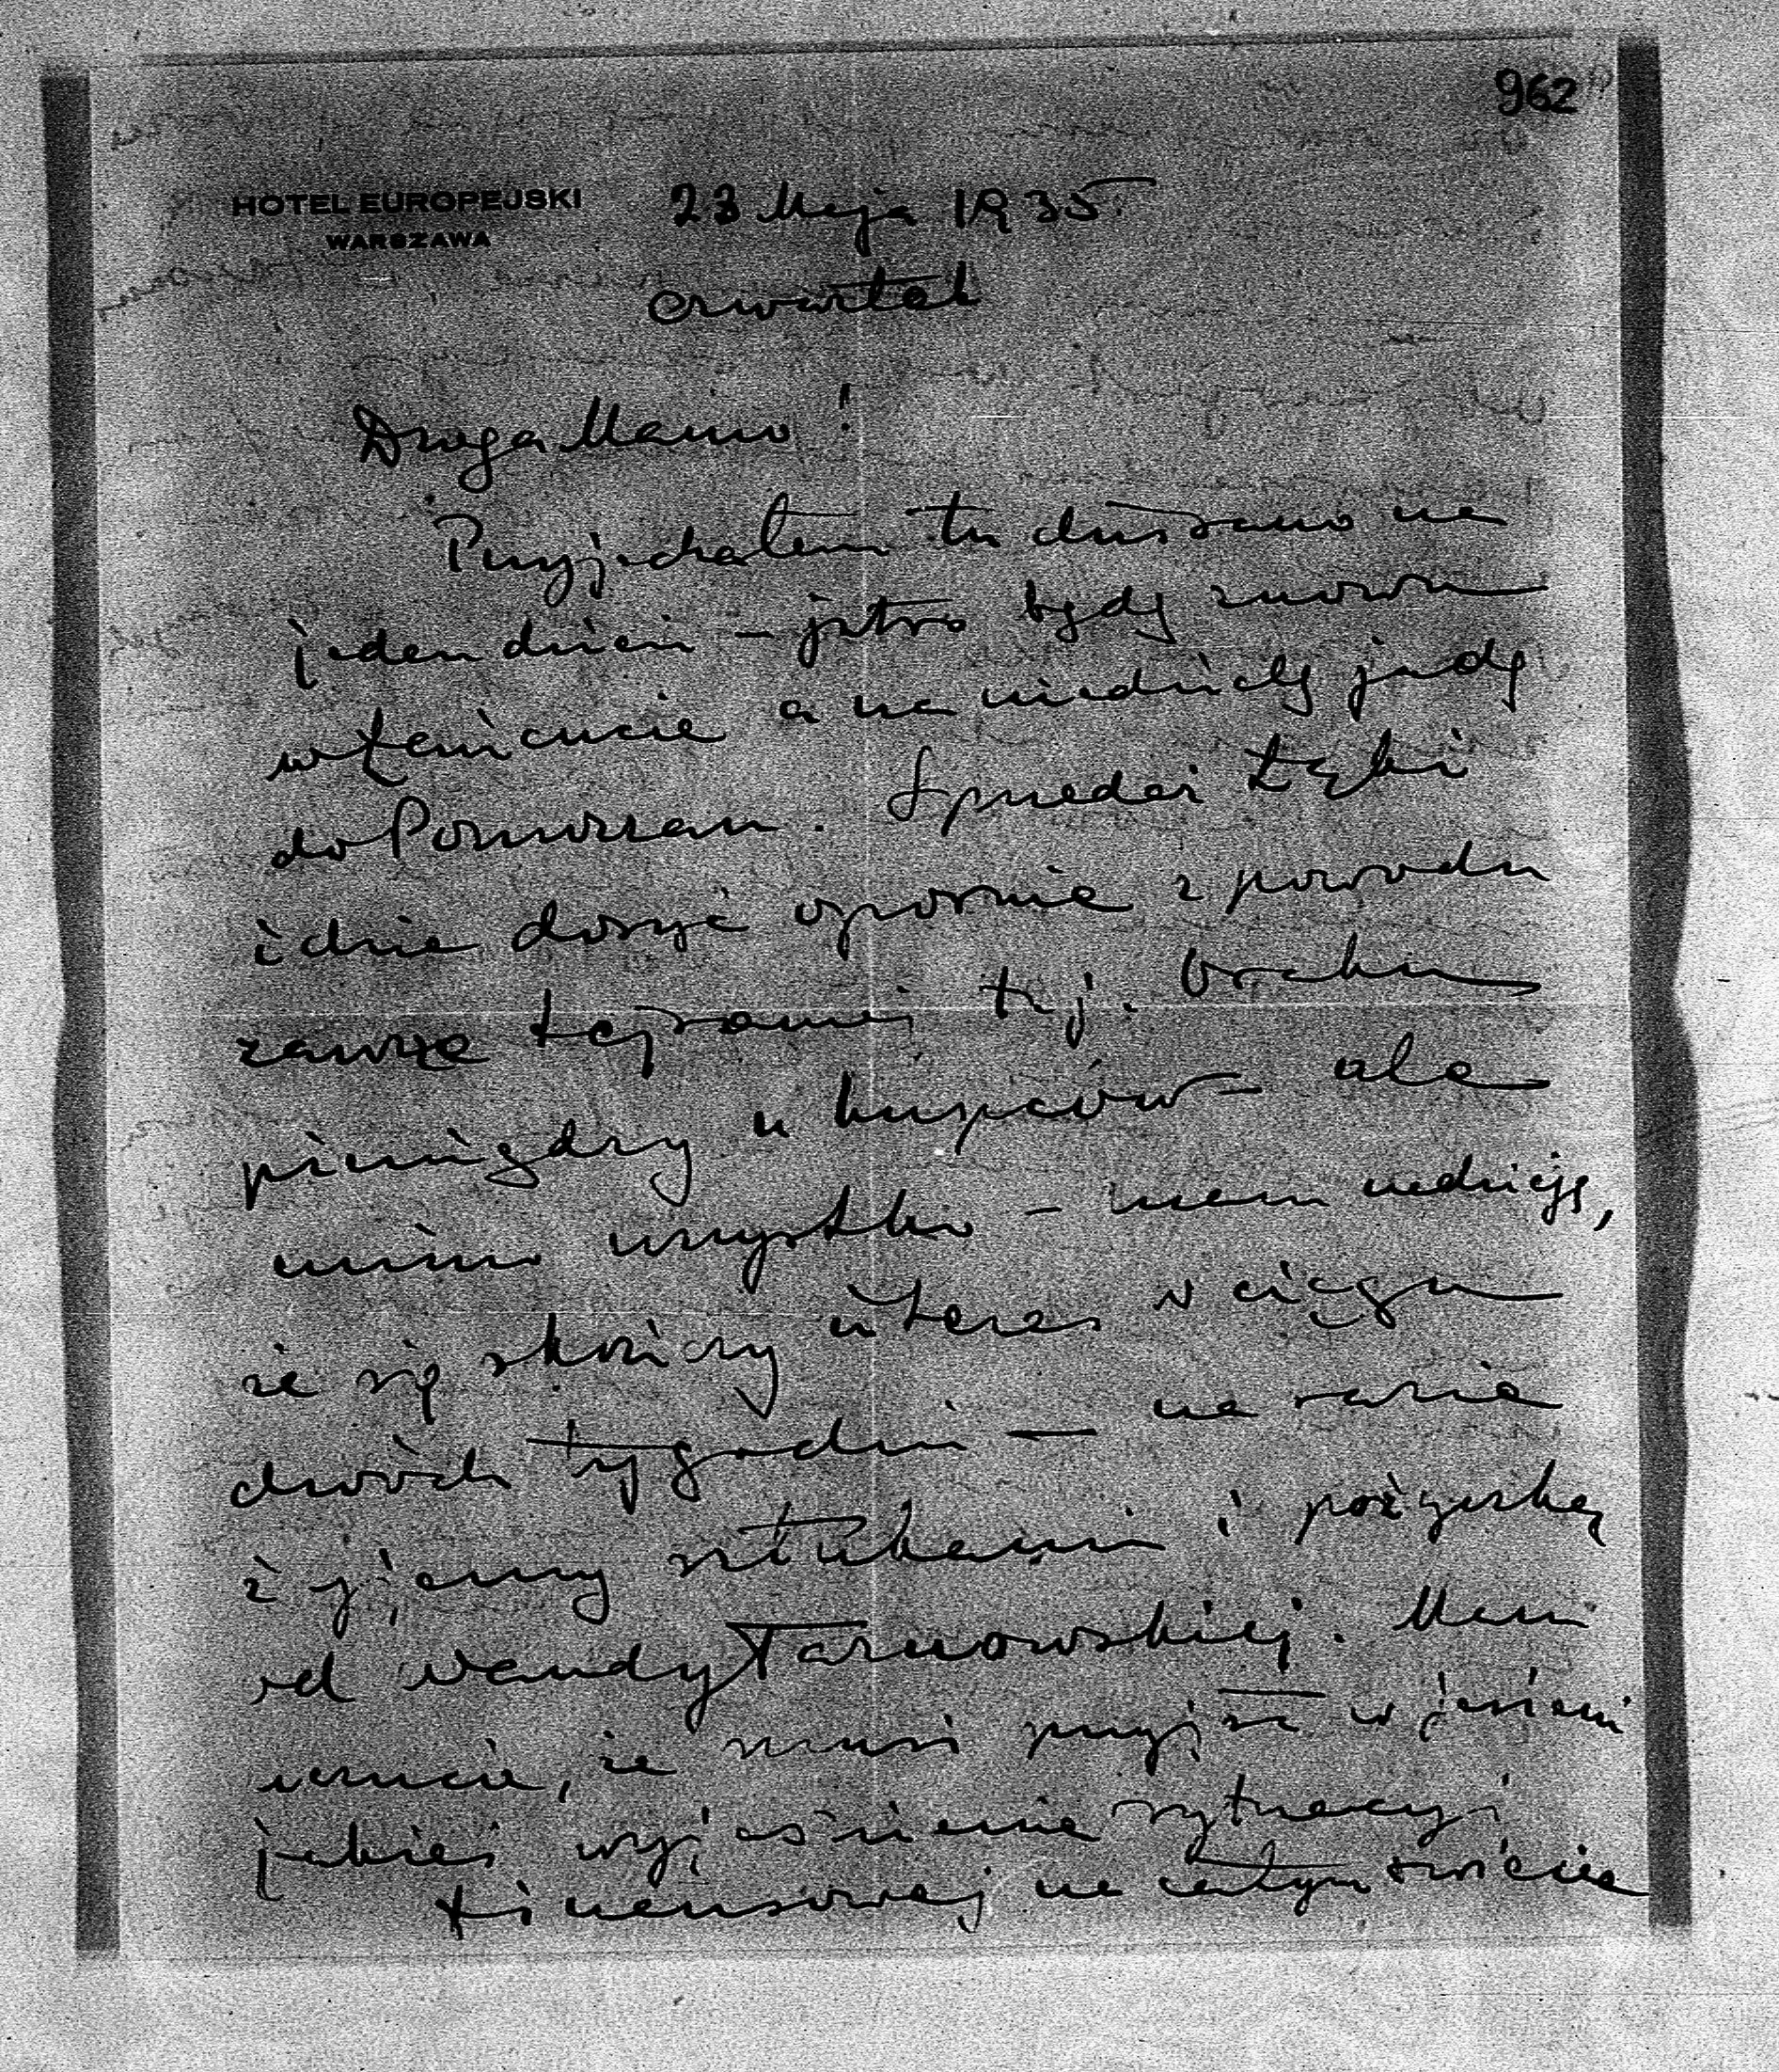 962
HOTEL EUROPEJSKI
WARSZAWA
23 Maja 1935
czwartek
Droga Mamo!
Przyjechałem tu dziś rano na
jeden dzień – jutro będę znowu
w Łańcucie a na niedzielę jadę
do Pomorzan. Sprzedaż Łąki
idzie dosyć opornie z powodu
zawsze tej samej t.j. braku
pieniędzy u kupców – ale
mimo wszystko – mam nadzieję,
że się skończy interes w ciągu
dwóch tygodni — na razie
żyjemy sztukami i pożyczką
od Wandy Tarnowskiej. Mam
uczucie, że musi przyjść w jesieni
jakieś wyjaśnienie sytuacyi
finansowej na całym świecie